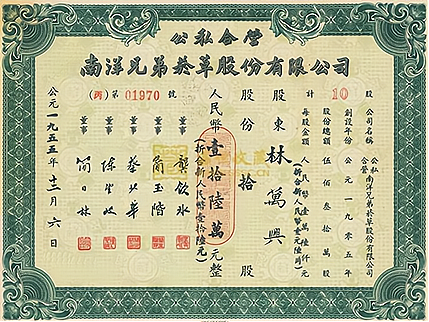 公私合營
南洋兄弟菸草股份有限公司
計 10 股
公司名稱 公私合營南洋兄弟菸草股份有限公司
創設年份 公元一九〇五年
股份總額 伍佰叁拾萬股
每股金額 人民幣壹萬陸仟元(折合新人民幣壹元陸角)
股東 林萬興
股份 拾 股
人民幣壹拾陸萬元整
(折合新人民幣壹拾陸元)
(丙)第 01970 號
董事 龔飲冰
董事
董事
董事 陳
董事 簡日林
公元一九五五年十二月六日